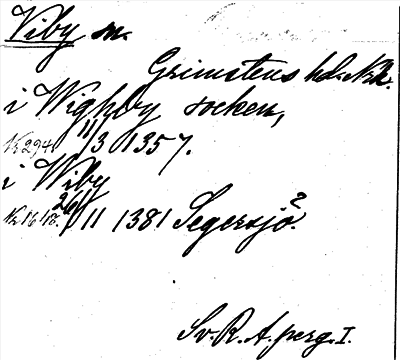 Viby sn.
Grimstens hd. Nke.
i Wighby socken,
Nr 294 11/3 1357.
i Wiby
26/11 1381 Segersjö?
Sv. R. A. perg. I.